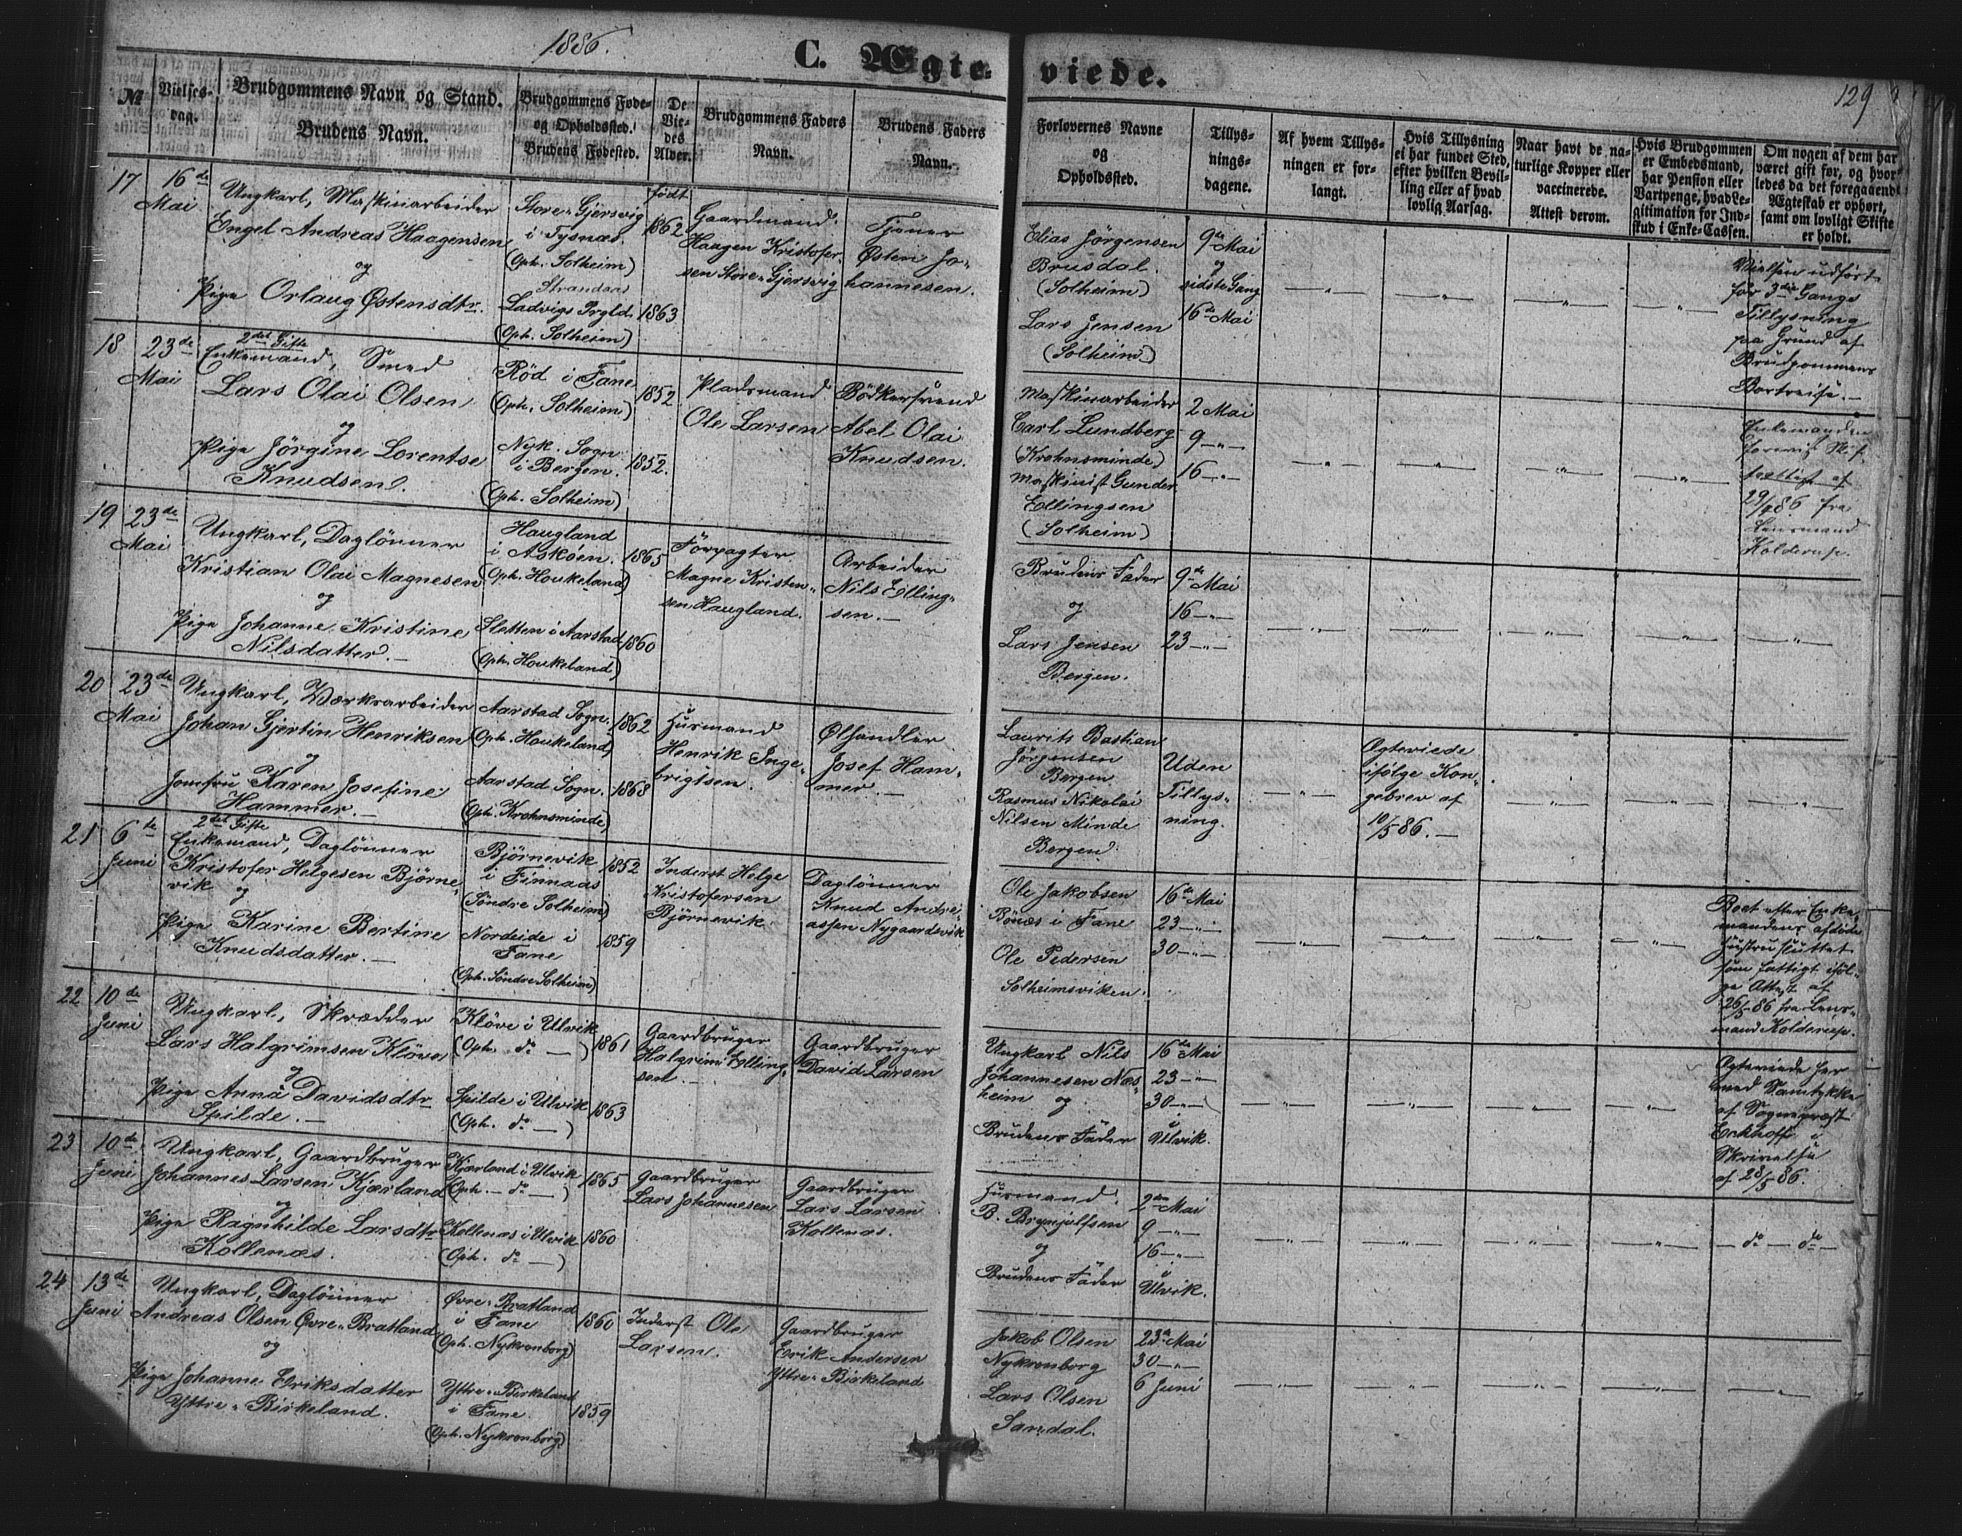 1886.
C. Ægteviede.
129
№
Vielses-
dag.
Brudgommens Navn og Stand.
Brudens Navn.
Brudgommens Føde-
og Opholdssted.
Brudens Fødested.
De
Vie-
des
Alder.
Brudgommens Faders
Navn.
Brudens Faders
Navn.
Forlovernes Navne
og
Opholdssted.
Tillys-
nings-
dagene.
Af hvem Tillys-
ningen er for-
langt.
Hvis Tillysning
ei har fundet Sted,
efter hvilken Bevil-
ling eller af hvad
lovlig Aarsag.
Naar havt de na-
turlige Kopper eller
vaccinerede.
Attest derom.
Hvis Brudgommen
er Embedsmand,
har Pension eller
Vartpenge, hvad Le-
gitimation for Ind-
skud i Enke-Cassen.
Om nogen af dem har
været gift før, og hvor-
ledes da det foregaaende
Ægteskab er ophørt,
samt om lovligt Skifte
er holdt.
17
16de
Mai
Ungkarl, Maskinarbeider
Engel Andreas Haagensen
og
Pige Orlaug Østensdtr.
Store-Gjersvig
i Tysnæs.
(Oph. Solheim)
Strandaas
Ladvigs Prgld.
(Oph. Solheim)
født
1862
1863
Gaardmand
Haagen Kristofer-
sen Store-Gjersvig
Tjener
Østen Jo-
hannesen.
Elias Jørgensen
Brusdal.
(Solheim)
Lars Jensen
(Solheim)
9de Mai
og
sidste Gang
16de Mai
Vielsen udført
før 3die Gangs
Tillysning
paa Grund af
Brudgommens
Bortreise.
18
23de
Mai
2det Gifte
Enkemand, Smed
Lars Olai Olsen
og
Pige Jörgine Lorentse
Knudsen.
Rød i Fane
(Oph. Solheim)
Nyk. Sogn
i Bergen.
(Oph. Solheim)
1852
1852.
Pladsmand
Ole Larsen
Bödkersvend
Abel Olai
Knudsen.
Maskinarbeider
Carl Lundberg
(Krohnsminde)
Maskinist Gunder
Ellingsen
(Solheim)
2 Mai
9 -"-
16 -"-
Enkemanden
29/4 86 fra
Lensmand
Kolderup.
19
23de
Mai
Ungkarl, Daglönner
Kristian Olai Magnesen
og
Pige Johanne Kristine
Nilsdatter.
Haugland
i Askøen.
(Oph. Houkeland)
Sletten i Aarstad
(Oph. Houkeland)
1865
1860
Forpagter
Magne Kristen-
sen Haugland.
Arbeider
Nils Elling-
sen.
Brudens Fader
og
Lars Jensen
Bergen.
9de Mai
16 -"-
23 -"-
20
23de
Mai
Ungkarl, Værksarbeider
Johan Gjertin Henriksen
og
Jomfru Karen Josefine
Hammer.
Aarstad Sogn.
(Oph. Houkeland)
Aarstad Sogn.
(Oph. Krohnsminde)
1862
1868
Husmand
Henrik Inge-
brigtsen.
Ølhandler
Josef Ham-
mer.
Laurits Bastian
Jörgensen
Bergen
Rasmus Nikolai
Nilsen Minde
Bergen.
Uden
Tillys-
ning.
Ægteviede
ifølge Kon-
gebrev af
10/5 86.
21
6te
Juni
2det Gifte
Enkemand, Daglönner
Kristofer Helgesen Bjørne-
vik
og
Pige Karine Bertine
Knudsdatter.
Bjørnevik
i Finnaas
(Söndre Solheim)
Nordeide i
Fane
(Oph. Söndre Solheim)
1852
1859
Inderst Helge
Kristofersen
Bjørnevik
Daglönner
Knud Andre-
assen Nygaardsvik
Ole Jakobsen
Bönæs i Fane
Ole Pedersen
Solheimsviken.
16de Mai
23 -"-
30 -"-
Boet efter Enke-
mandens afdøde
Hustru sluttet
som fattigt iføl-
ge Attest af
26/5 86 fra Lens-
mand Kolderup.
22
10de
Juni
Ungkarl, Skrædder
Lars Halgrimsen Kløve
og
Pige Anna Davidsdtr
Spilde.
Kløve i Ulvik
(Oph. do)
Spilde i Ulvik
(Oph. do)
1861
1863
Gaardbruger
Halgrim Elling-
sen
Gaardbruger
David Larsen
Ungkarl Nils
Johannesen Næs-
heim og
Brudens Fader
16de Mai
23 -"-
30 -"-
i
Ulvik.
Ægteviede her
med Samtykke
af Sognepræst
Eckhoff i
Skrivelse
af 28/5 86.
23
10de
Juni
Ungkarl, Gaardbruger
Johannes Larsen Kjærland
og
Pige Ragnhilde Larsdtr
Kollenæs.
Kjærland i Ulvik
(Oph. do)
Kollenæs i Ulvik
(Oph. do)
1865
1860
Gaardbruger
Lars Johannesen
Gaardbruger
Lars Larsen
Kollenæs.
Husmand
B. Brynjulfsen
og
Brudens Fader
2den Mai
9 -"-
16 -"-
i
Ulvik.
do do
24
13de
Juni
Ungkarl, Daglönner
Andreas Olsen Øvre-Bratland
og
Pige Johanne Eriksdatter
Yttre-Birkeland.
Øvre-Bratland
i Fane
(Oph. Nykronborg)
Yttre-Birkeland
i Fane.
(Oph. Nykronborg)
1860
1859
Inderst Ole
Larsen.
Gaardbruger
Erik Andersen
Yttre-Birkeland
Jakob Olsen
Nykronborg
Lars Olsen
Sandal.
23de Mai
30 -"-
6 Juni